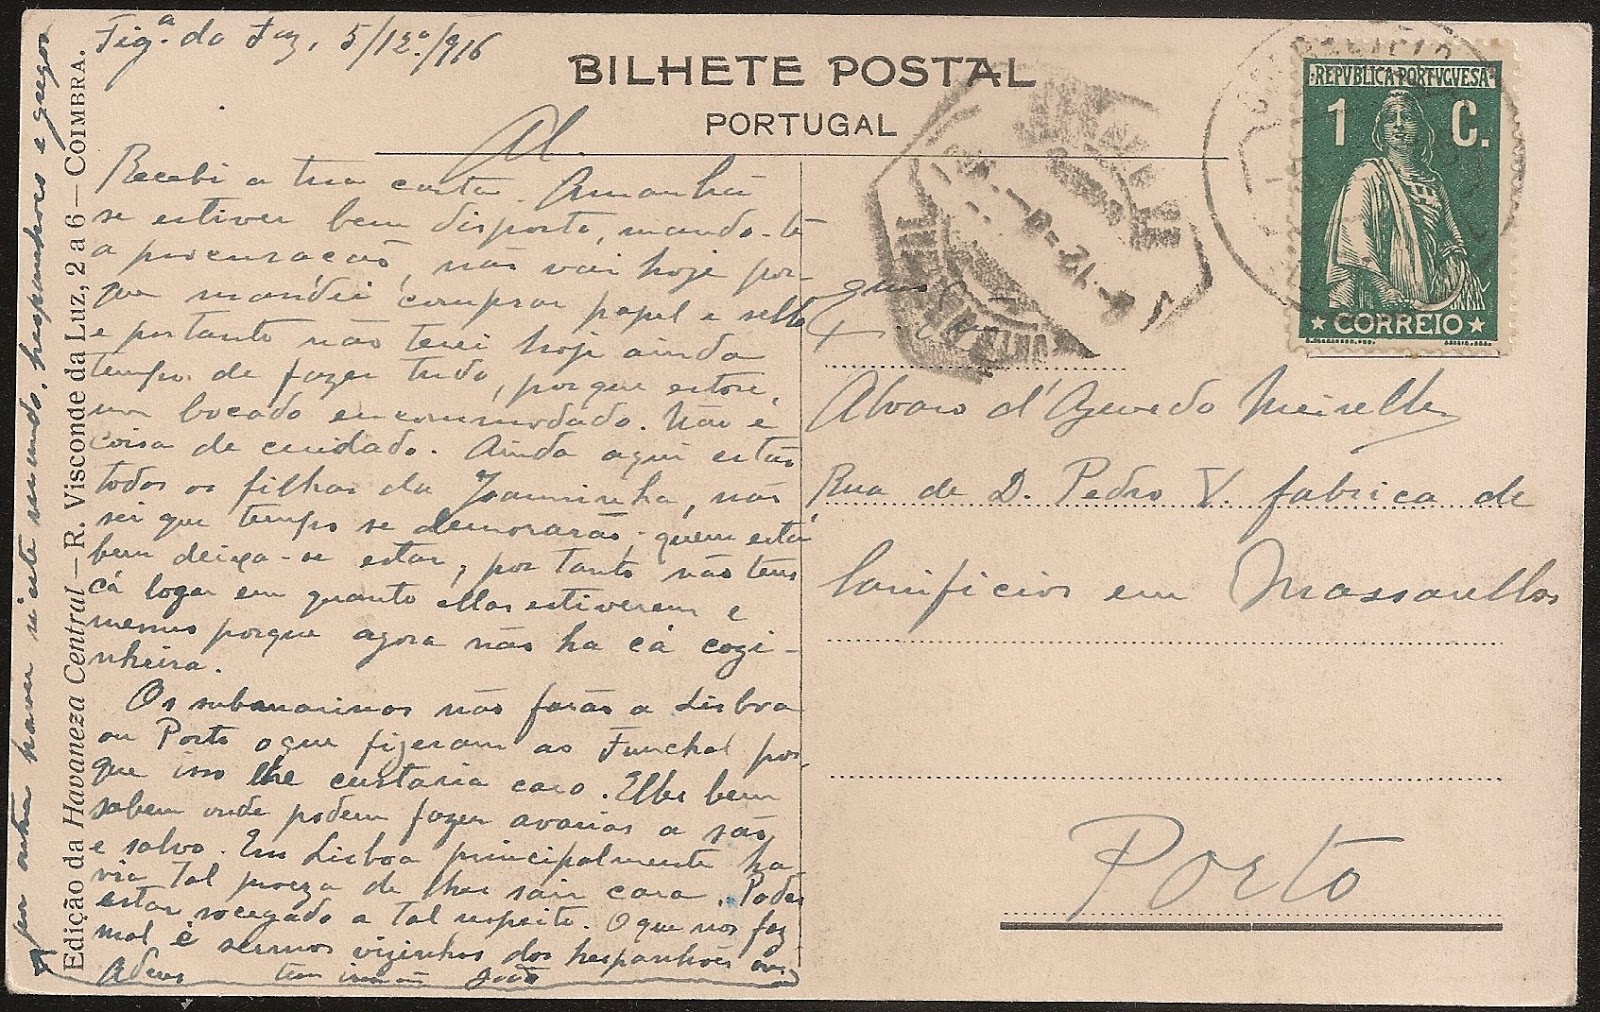 Figª. da Foz, 5/12º/916
BILHETE POSTAL
PORTUGAL
Al.
Recebi a tua carta. Amanhã
se estiver bem disposto, mando-te
a procuração, não vai hoje por-
que mandei comprar papel e sello
e portanto não terei hoje ainda
tempo de fazer tudo, porque estou
um bocado encommodado. Não é
coisa de cuidado. Ainda aqui estão
todos os filhos da Joanninha, não
sei que tempo se demorarão; quem está
bem deixa-se estar, por tanto não tens
cá logar em quanto ellas estiverem e
menos porque agora não ha cá cozi-
nheira.
Os submarinos não farão a Lisboa
ou Porto o que fizeram ao Funchal por-
que isso lhe custaria caro. Elles bem
sabem onde podem fazer avarias a são
e salvo. Em Lisboa principalmente ha-
via tal proeza de lhes sair cara. Podes
estar socegado a tal respeito. O que nos faz
mal é sermos vizinhos dos hespanhoes
Adeus teu irmão João
por outra haver n'este mundo, hespanhoes e gregos
Edição da Havaneza Central — R. Visconde da Luz, 2 a 6 — COIMBRA.
REPVBLICA PORTVGVESA
1 C.
CORREIO
Alvaro d'Azevedo Meirelles
Rua de D. Pedro V. fabrica de
lanificios em Massarellos
Porto